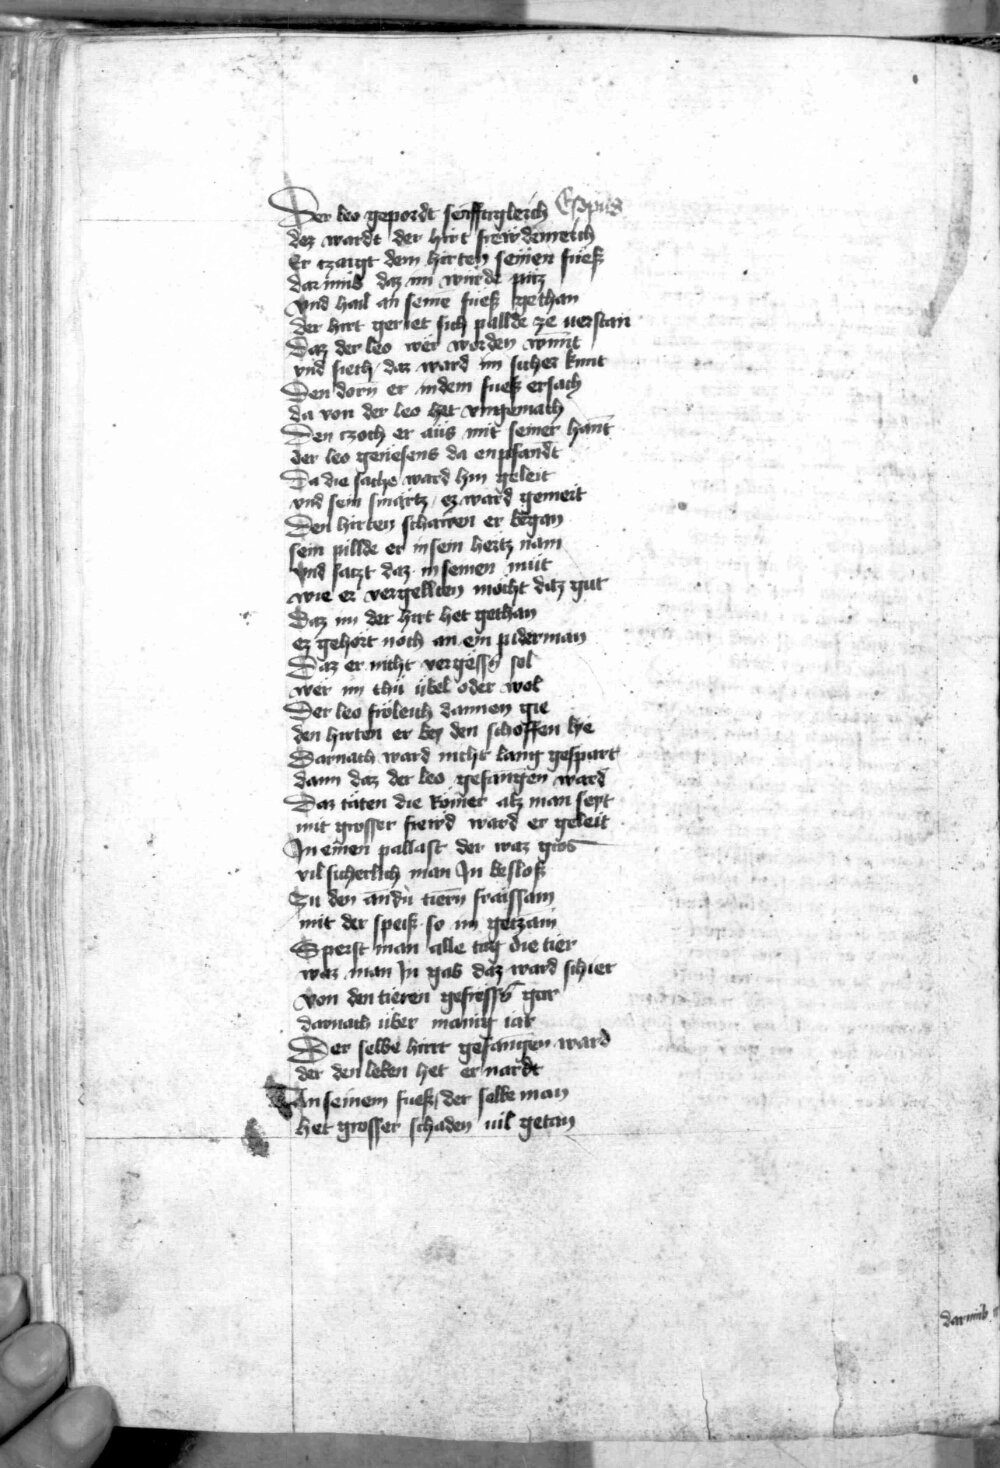 Der leo gepordt senfftigleich Esopus
dez wardt der hirt frewdenreich
Er tzaigt dem hirten seinen fueß
dar umb daz im würde püz
vnd hail an seinē fueß gethan
der hirt geriet sich pallde ze uerstan
Daz der leo wer worden wunt
vnd siech daz ward im sicher kunt
Den dorn er in dem fueß ersach
da von der leo het vngemach
Den tzoch er aüs mit seiner hant
der leo geniesens da enpfandt
Da die sache ward hin geleit
vnd sein smartz ez ward gemeit
Den hirten schawen er began
sein pillde er in sein hertz nam
vnd satzt daz in seinen müt
wie er vergellten möcht daz gut
Daz im der hirt het gethan
ez gehört noch an ein piderman
Daz er nicht vergessn sol
wer im thü übel oder wol
Der leo fröleich dannen gie
den hirten er bey den schoffen lye
Darnach ward nicht lang gespart
dann daz der leo gefangen ward
Daz täten die Römer alz man seyt
mit grosser frewd ward er geleit
In einen pallast der waz gros
vil sicherlich man In besloß
Zu den andn tiern fraissam
mit der speiß so im getzam
Sperst man alle tag die tier
waz man In gab daz ward schier
von den tieren gefressn gar
darnach über manig iar
Der selbe hirt gefangen ward
der den leben het ernardt
An seinem fueß der selbe man
het grosser schaden uil getan
darumb